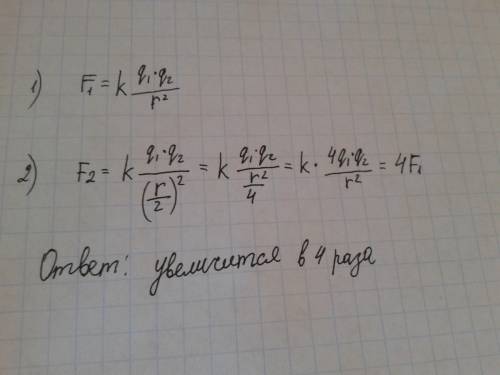 1) F₁ = k q₁·q₂/r²
2) F₂ = k q₁·q₂/(r/2)² = k q₁·q₂/(r²/4) = k · 4q₁·q₂/r² = 4F₁
Ответ: увеличится в 4 раза